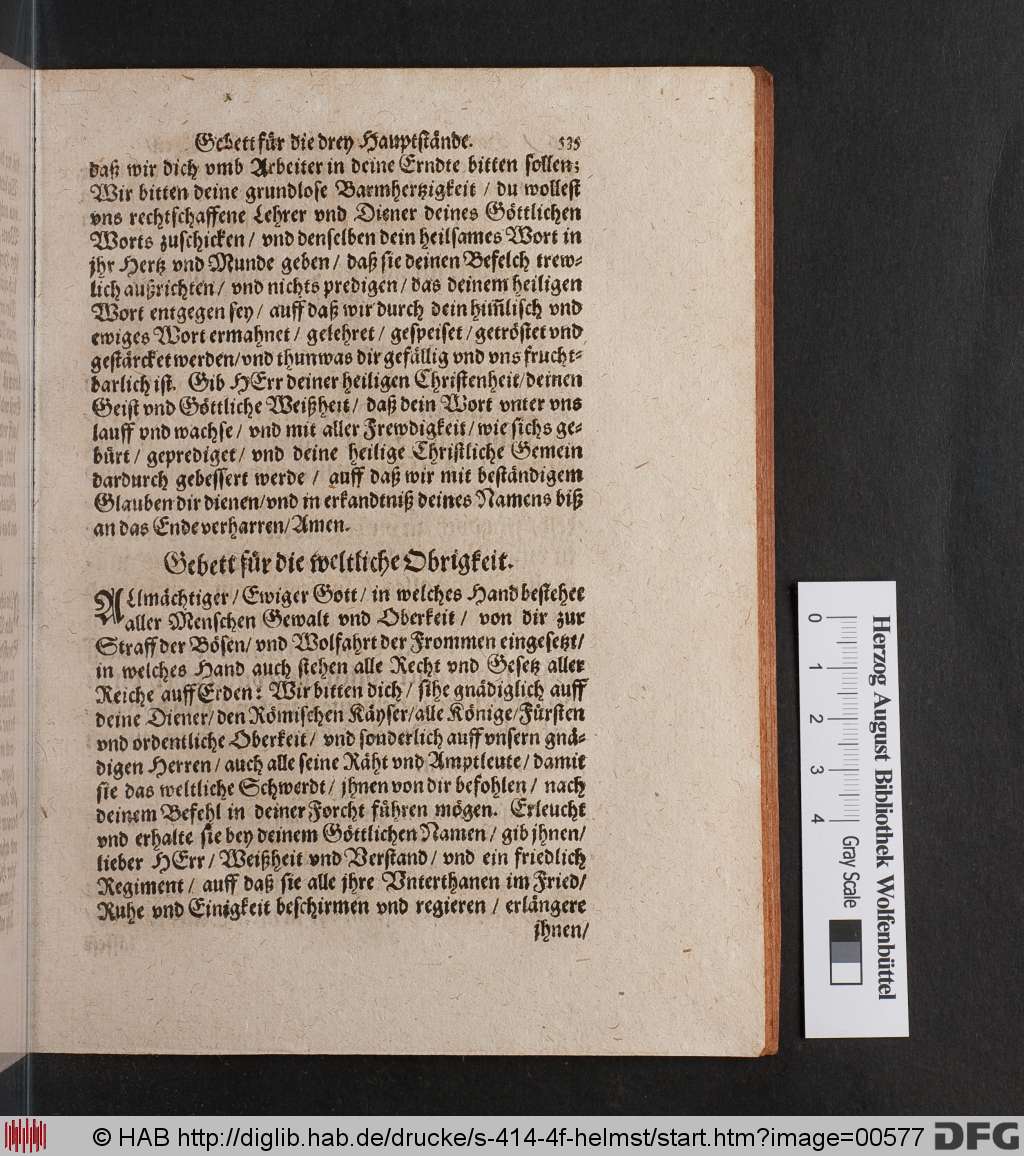 Gebett für die drey Hauptstände. 535
daß wir dich vmb Arbeiter in deine Erndte bitten sollen;
Wir bitten deine grundlose Barmhertzigkeit / du wollest
vns rechtschaffene Lehrer vnd Diener deines Göttlichen
Worts zuschicken / vnd denselben dein heilsames Wort in
jhr Hertz vnd Munde geben / daß sie deinen Befelch trew-
lich außrichten / vnd nichts predigen / das deinem heiligen
Wort entgegen sey / auff daß wir durch dein him̃lisch vnd
ewiges Wort ermahnet / gelehret / gespeiset / getröstet vnd
gestärcket werden / vnd thun was dir gefällig vnd vns frucht-
barlich ist. Gib HErr deiner heiligen Christenheit / deinen
Geist vnd Göttliche Weißheit / daß dein Wort vnter vns
lauff vnd wachse / vnd mit aller Frewdigkeit / wie sichs ge-
bürt / geprediget / vnd deine heilige Christliche Gemein
dardurch gebessert werde / auff daß wir mit beständigem
Glauben dir dienen / vnd in erkandtniß deines Namens biß
an das Ende verharren / Amen.
Gebett für die weltliche Obrigkeit.
ALlmächtiger / Ewiger Gott / in welches Hand bestehet
aller Menschen Gewalt vnd Oberkeit / von dir zur
Straff der Bösen / vnd Wolfahrt der Frommen eingesetzt /
in welches Hand auch stehen alle Recht vnd Gesetz aller
Reiche auff Erden: Wir bitten dich / sihe gnädiglich auff
deine Diener / den Römischen Käyser / alle Könige / Fürsten
vnd ordentliche Oberkeit / vnd sonderlich auff vnsern gnä-
digen Herren / auch alle seine Räht vnd Amptleute / damit
sie das weltliche Schwerdt / jhnen von dir befohlen / nach
deinem Befehl in deiner Forcht führen mögen. Erleucht
vnd erhalte sie bey deinem Göttlichen Namen / gib jhnen /
lieber HErr / Weißheit vnd Verstand / vnd ein friedlich
Regiment / auff daß sie alle jhre Vnterthanen im Fried /
Ruhe vnd Einigkeit beschirmen vnd regieren / erlängere
jhnen /
0 1 2 3 4
Gray Scale
Herzog August Bibliothek Wolfenbüttel
© HAB http://diglib.hab.de/drucke/s-414-4f-helmst/start.htm?image=00577
DFG